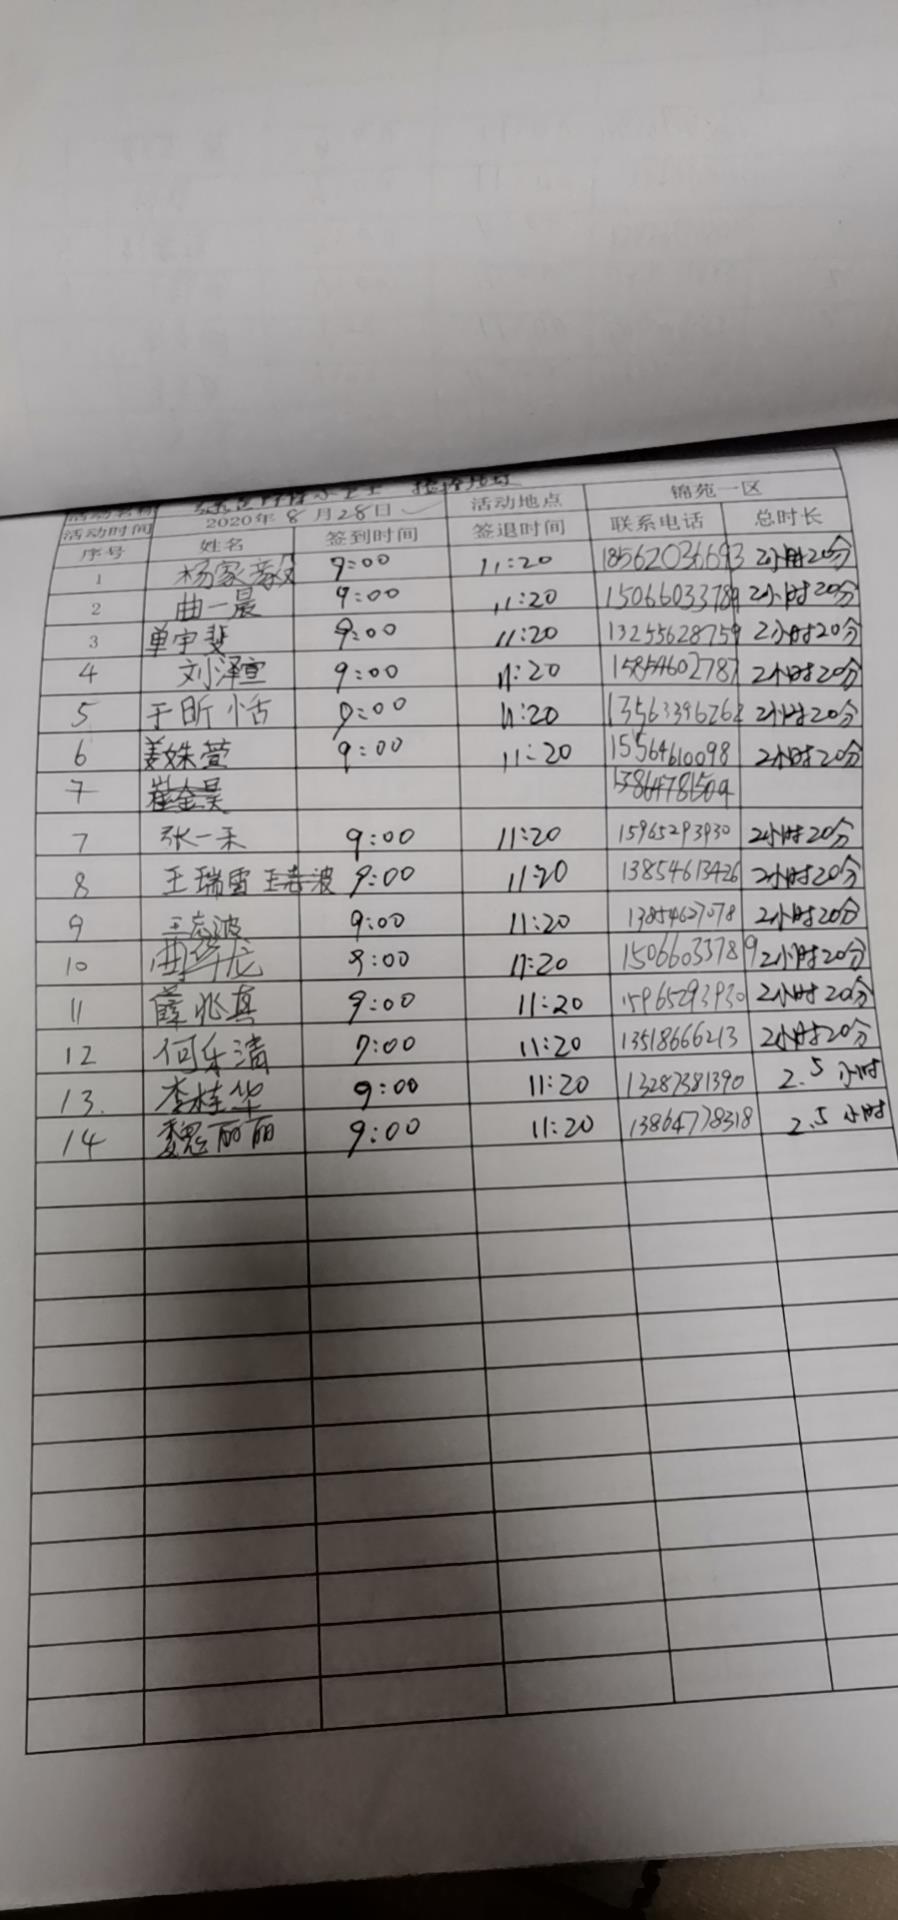 活动名称 活动地点 锦苑一区
活动时间 2020年8月28日 签退时间 联系电话 总时长
序号 姓名 签到时间
1 杨家毅 9:00 11:20 18562036693 2小时20分
2 曲一晨 9:00 11:20 15066033789 2小时20分
3 单宇斐 9:00 11:20 13255628759 2小时20分
4 刘泽宣 9:00 11:20 15854602787 2小时20分
5 于昕恬 9:00 11:20 13563396262 2小时20分
6 姜姝萱 9:00 11:20 15564610098 2小时20分
7 崔金昊
7 张一禾 9:00 11:20 15965293930 2小时20分
8 王瑞雪 王志波 9:00 11:20 13854613426 2小时20分
9 王志波 9:00 11:20 13854627078 2小时20分
10 曲华龙 9:00 11:20 15066033789 2小时20分
11 薛兆真 9:00 11:20 15965293930 2小时20分
12 何乐清 9:00 11:20 13518666213 2小时20分
13. 李桂华 9:00 11:20 13287381390 2.5小时
14 魏丽丽 9:00 11:20 13864778318 2.5小时